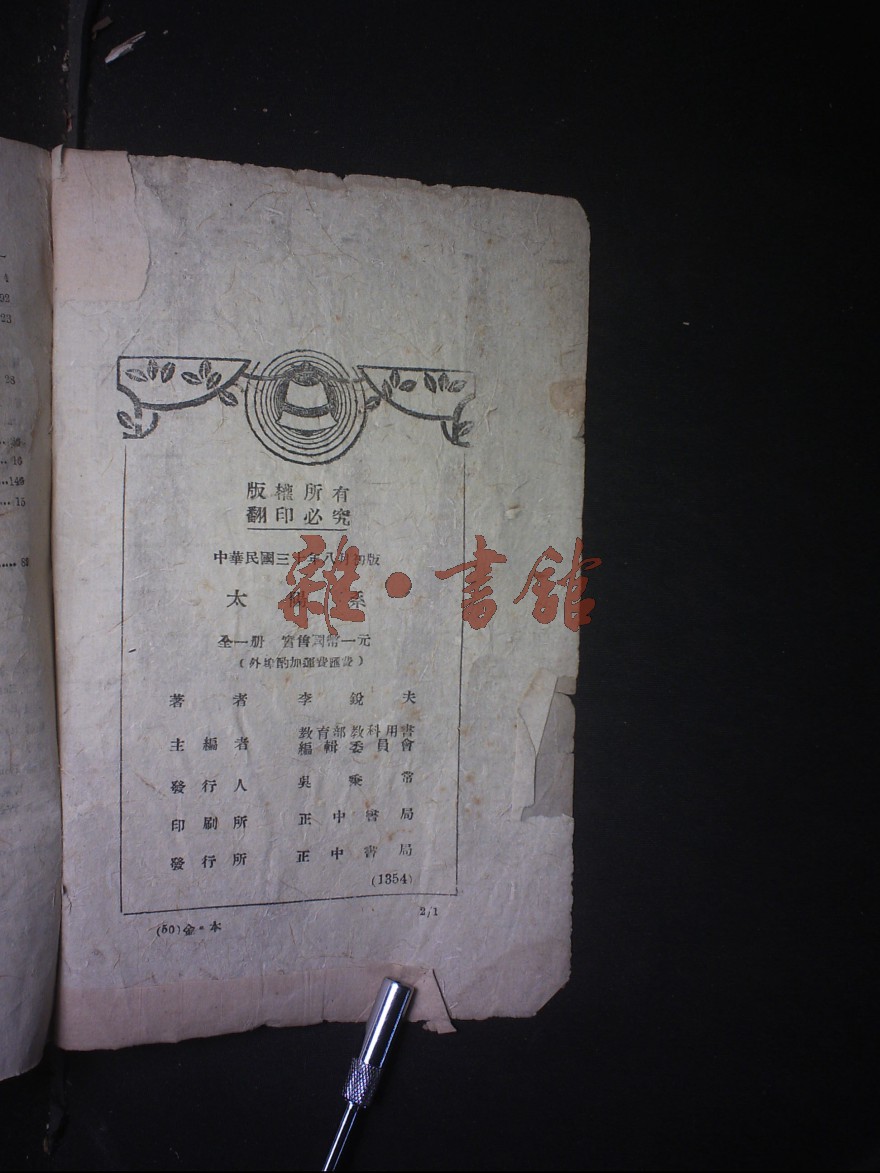 4
02
23
28
36
10
149
15
81
版權所有
翻印必究
中華民國三十年八月初版
太陽系
全一册 實售國幣一元
(外埠酌加運費匯費)
著者 李銳夫
主編者 教育部教科用書
編輯委員會
發行人 吳秉常
印刷所 正中書局
發行所 正中書局
(1354)
2/1
(50)金·本
雜·書館